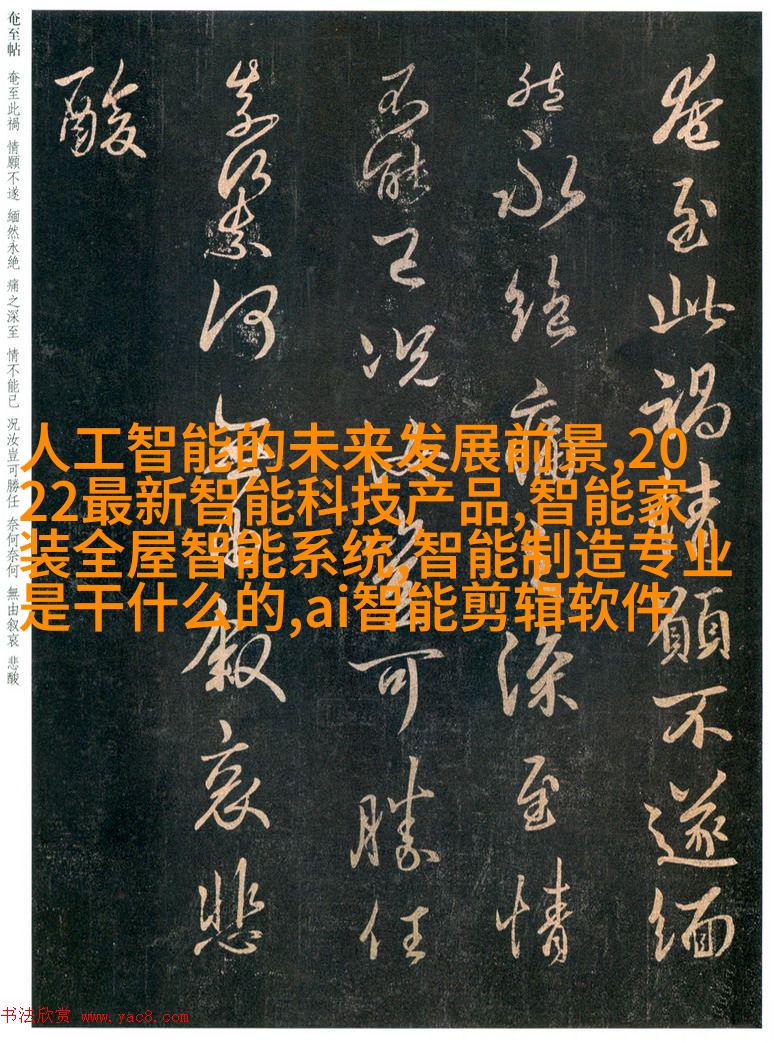 奄至帖 奄至此禍 情願不遂 緬然永絶 痛之深至 情不能已 况汝豈可勝任 奈何奈何 無由叙哀 悲酸
奄至此禍情願不遂緬
然永絶痛之深至情
不能已况汝豈可勝任
奈何奈何無由叙哀悲
酸
人工智能的未来发展前景,20
22最新智能科技产品,智能家
装全屋智能系统,智能制造专业
是干什么的,ai智能剪辑软件
书法欣赏 www.yac8.com